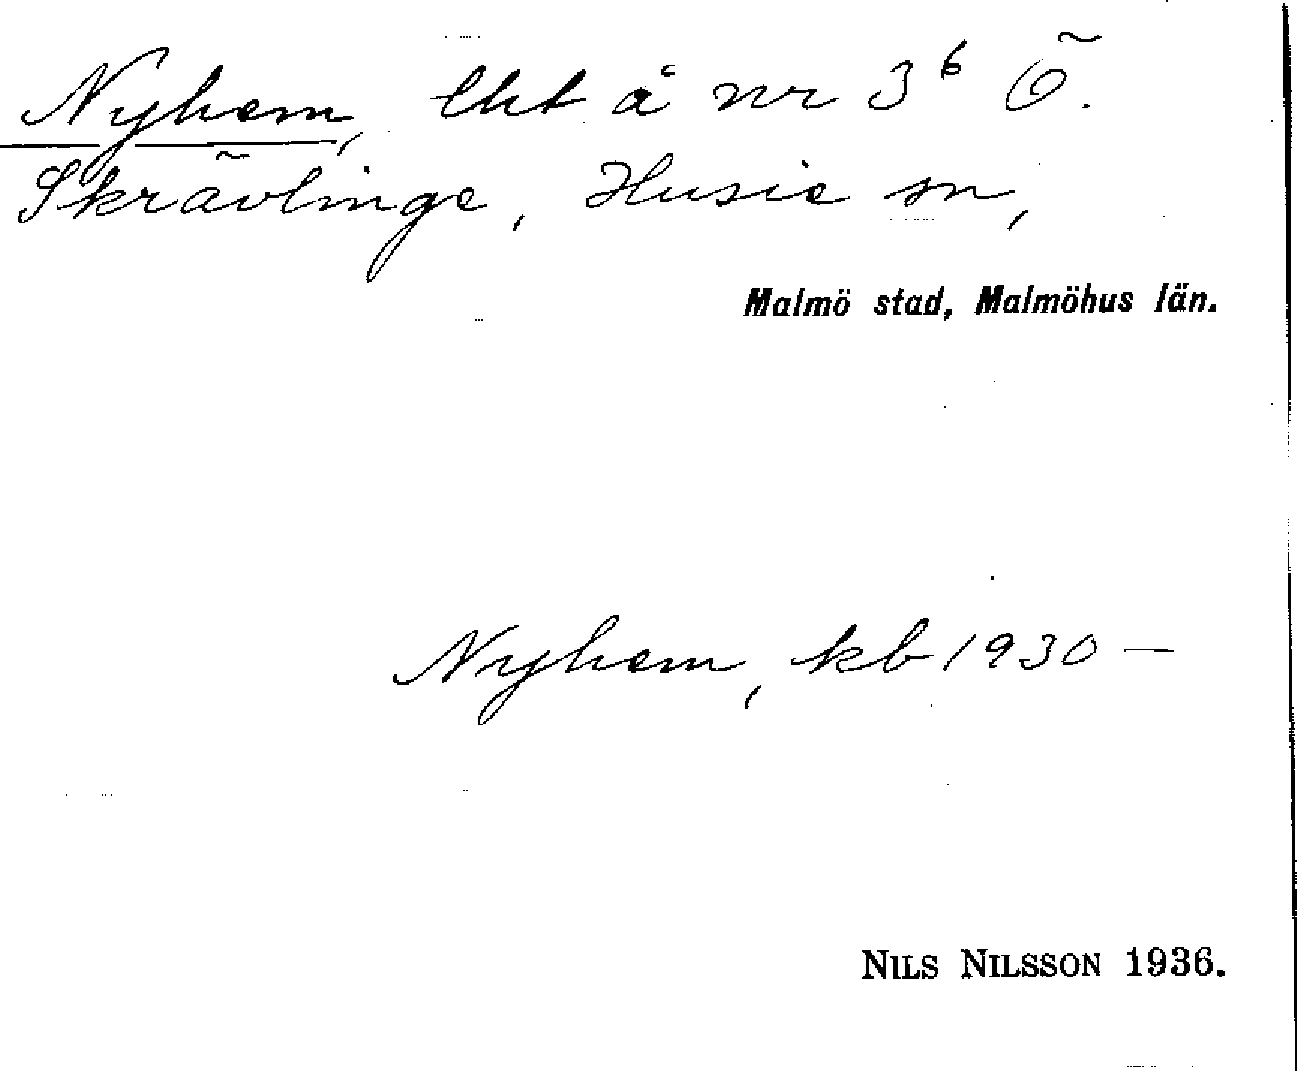 Nyhem, lht å nr 3⁶ Ö.
Skrävlinge, Husie sn,
Malmö stad, Malmöhus län.
Nyhem, kb 1930 —
NILS NILSSON 1936.